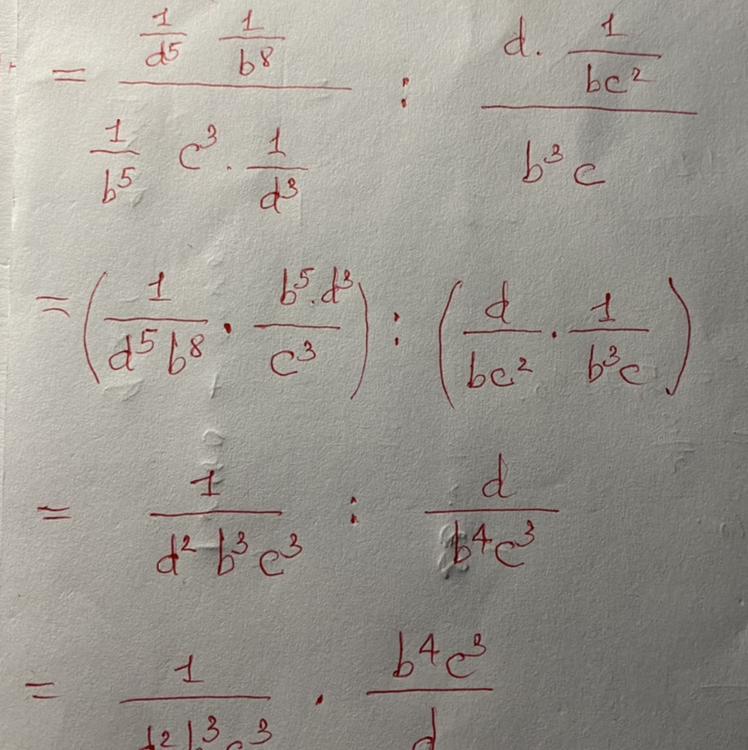 = (1/d⁵ 1/b⁸)/(1/b⁵ c³ . 1/d³) : (d. 1/bc²)/(b³c)
= (1/d⁵b⁸ . b⁵.d³/c³) : (d/bc² . 1/b³c)
= 1/d²b³c³ : d/b⁴c³
= 1/d²b³c³ . b⁴c³/d